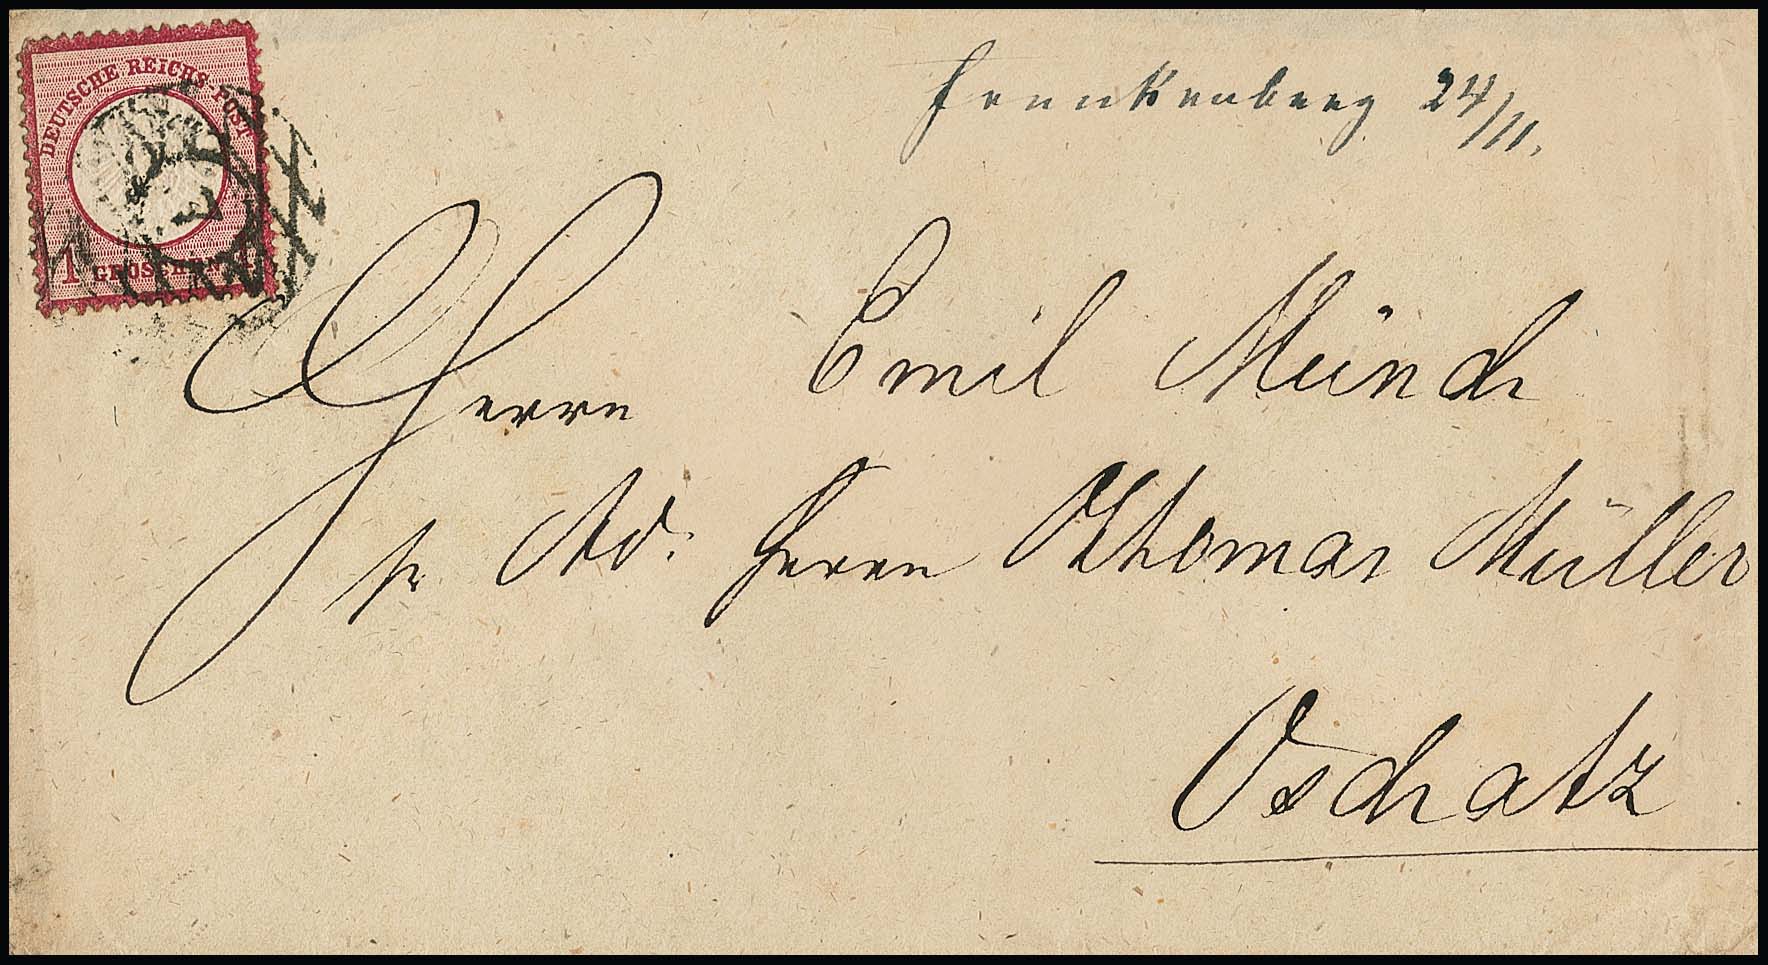 DEUTSCHE REICHS-POST
1 GROSCHEN 1
Frankenberg 24/11.
Herrn Emil Münch
pr Ad. Herrn Ottomar Müller
Oschatz